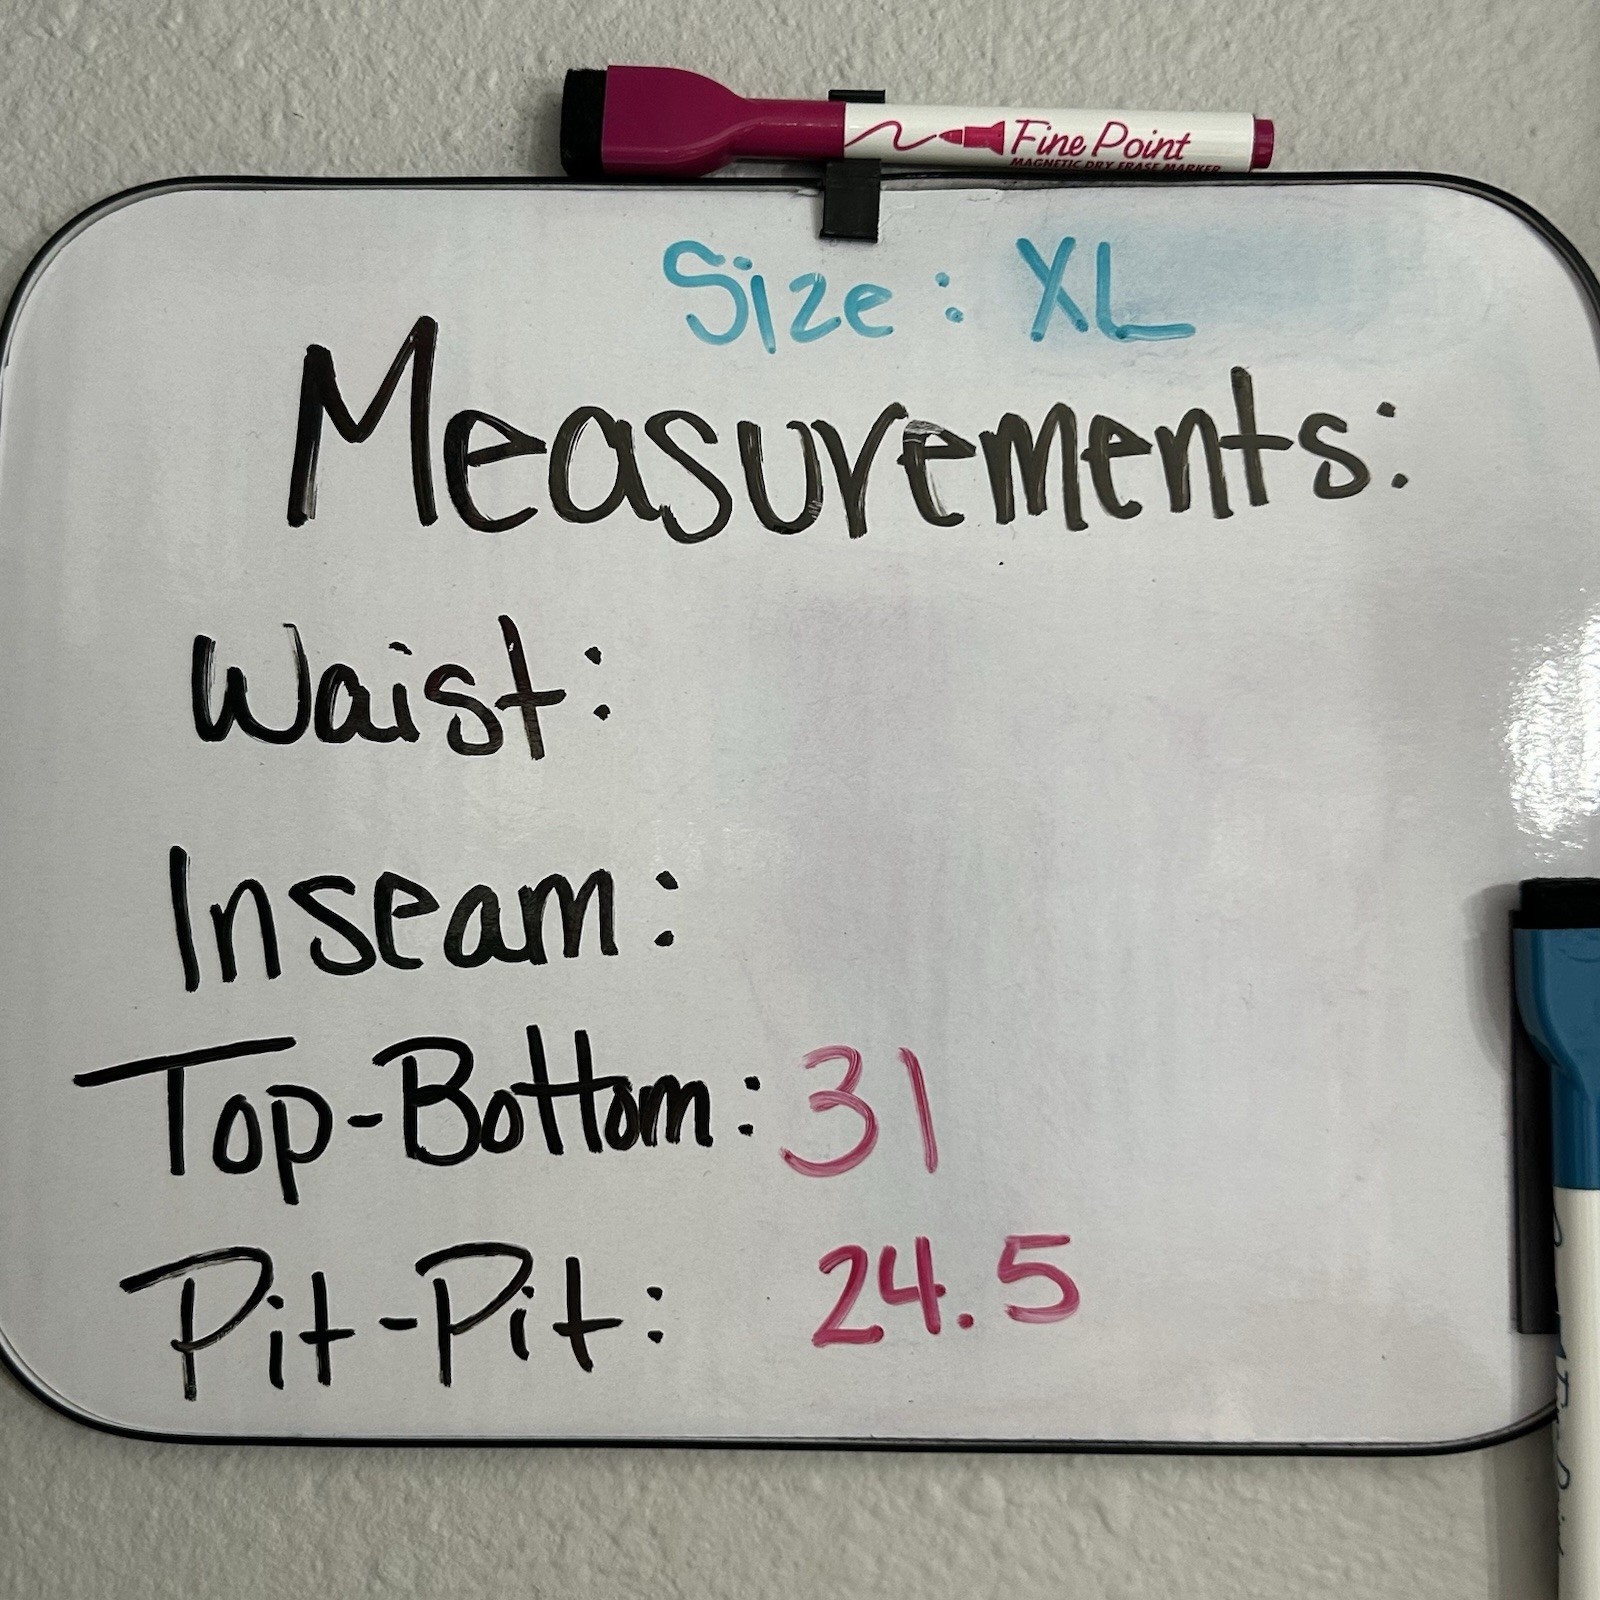 Fine Point
MAGNETIC DRY ERASE MARKER
Size: XL
Measurements:
Waist:
Inseam:
Top-Bottom: 31
Pit-Pit: 24.5